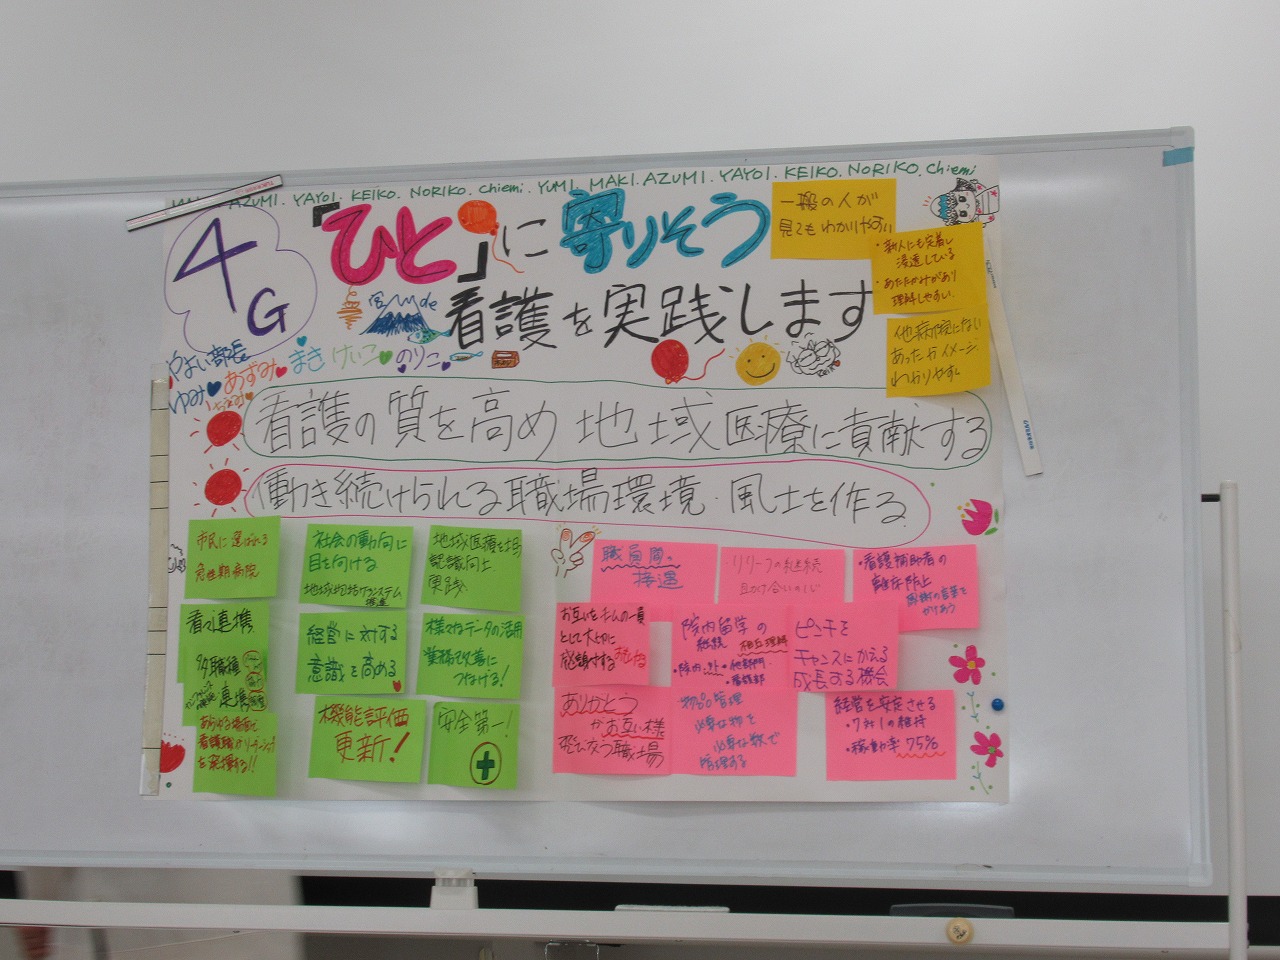 AZUMI. YAYOI. KEIKO. NORIKO. Chiemi. YUMI. MAKI. AZUMI. YAYOI. KEIKO. NORIKO. Chiemi
4G
「ひと」に寄りそう
看護を実践します
やよい部長
ゆみ あずみ まき けいこ のりこ
一般の人が
見てもわかりやすい
・新人にも定着し
浸透している
・あたたかみがあり
理解しやすい
他病院にない
あったかイメージ
わかりやすく
看護の質を高め 地域医療に貢献する
働き続けられる職場環境・風土を作る
市民に選ばれる
急性期病院
社会の動向に
目を向ける
地域包括ケアシステム
推進
認識向上
実践
看々連携
多職種
連携
経営に対する
意識を高める
様々なデータの活用
業務改善に
つなげる!
あらゆる場面で
看護職が
を発揮する!!
機能評価
更新!
安全第一!
職員間の
接遇
リリーフの継続
助け合いの
・看護補助者の
離床防止
感謝の言葉を
かけあう
お互いをチームの一員
として大切に
感謝する
院内留学の
継続 相互理解
・他部門
・看護部
ピンチを
チャンスにかえる
成長する機会
ありがとう
がお互い様
飛び交う職場
物品管理
必要な物を
必要な数で
管理する
経営を安定させる
・7対1の維持
・稼動率75%